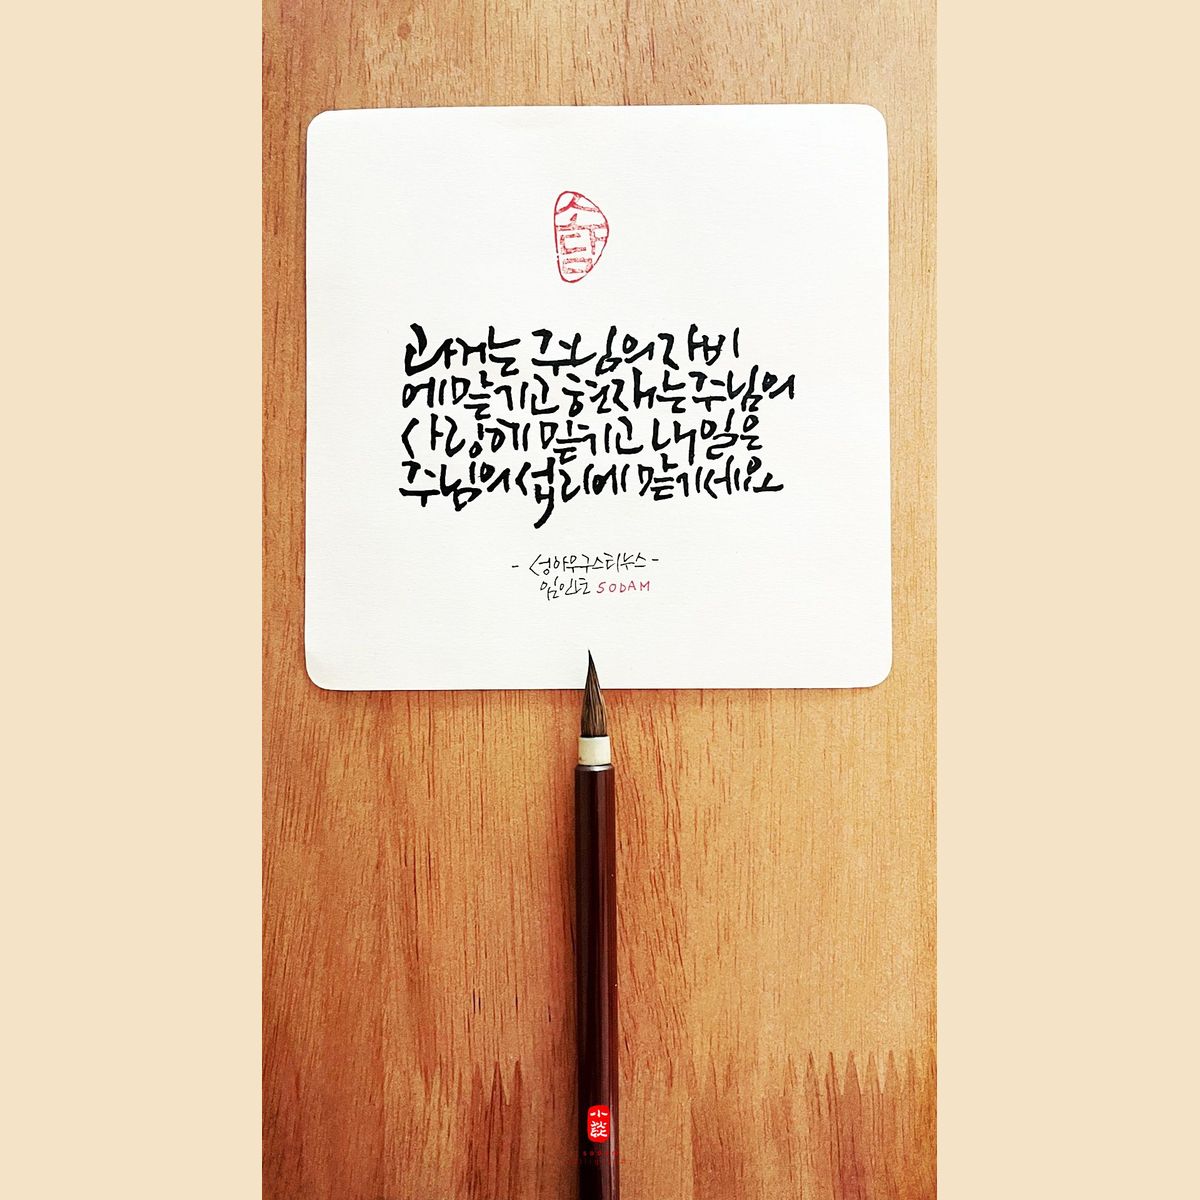 소담
과거는 주님의 자비
에 맡기고 현재는 주님의
사랑에 맡기고 내일은
주님의 섭리에 맡기세요
- 성아우구스티누스 -
임인초 SODAM
小談